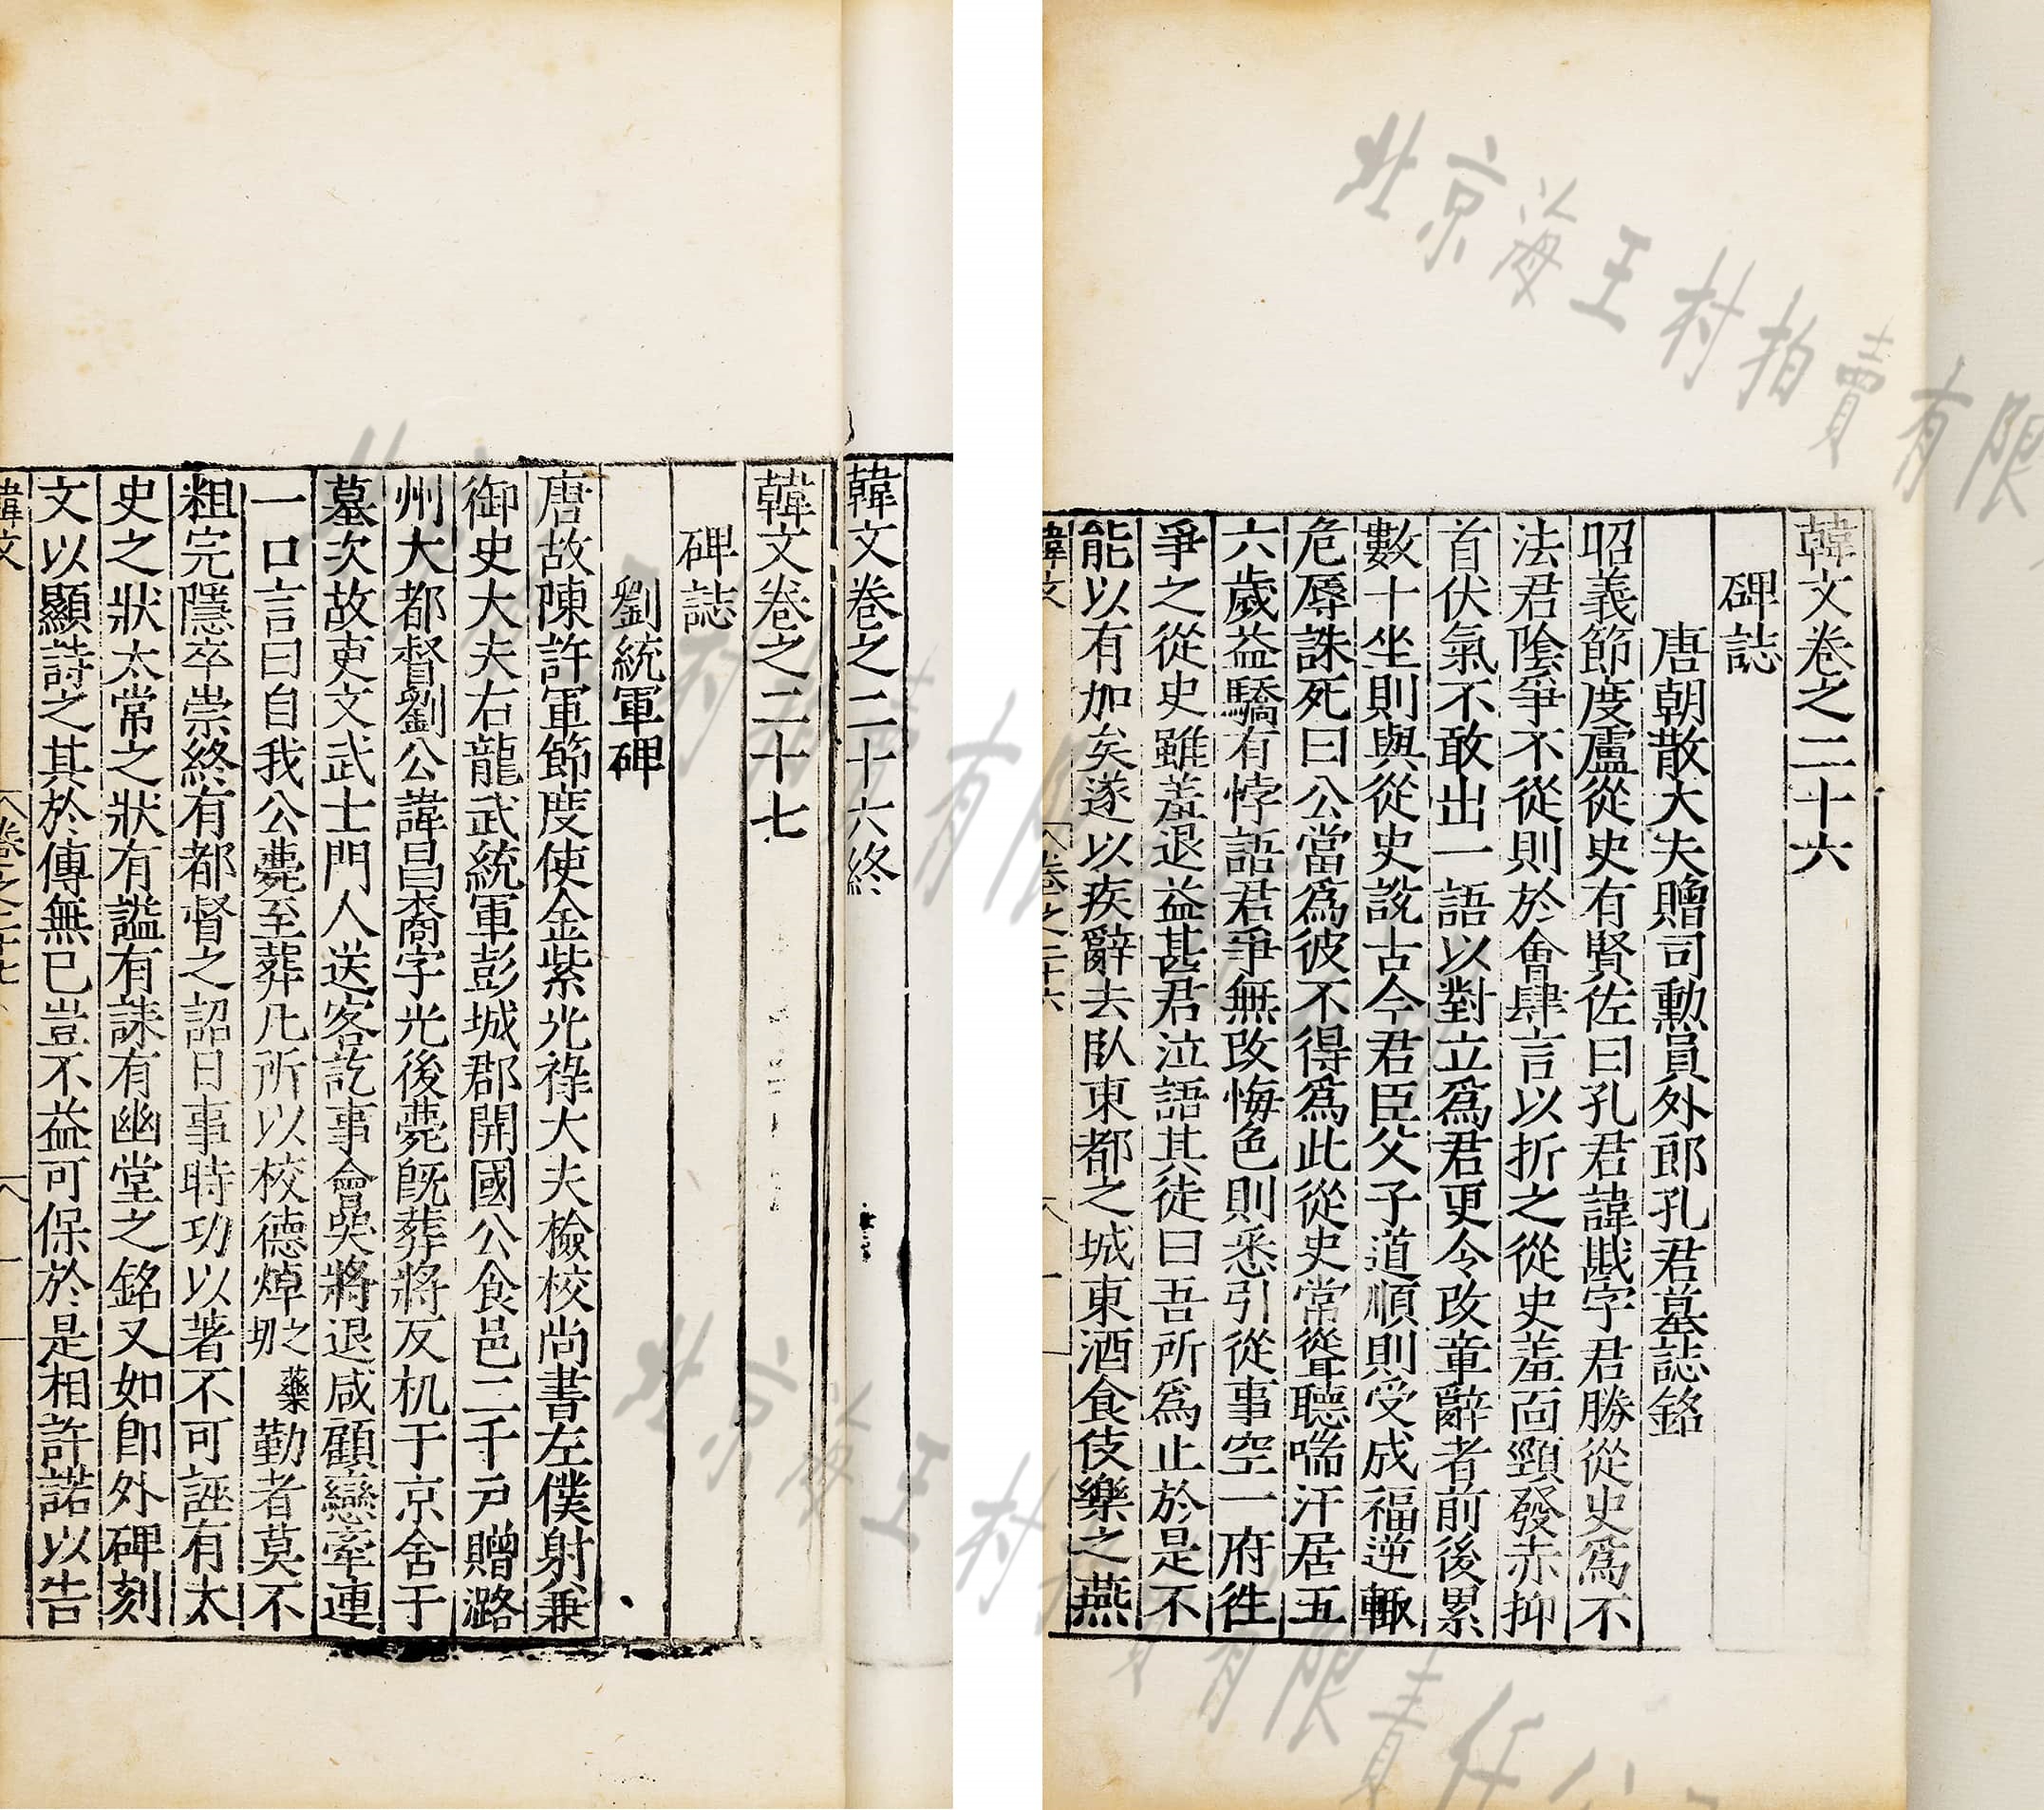 韓文卷之二十六
碑誌
唐朝散大夫贈司勳員外郎孔君墓誌銘
昭義節度盧從史有賢佐曰孔君諱戡字君勝從史爲不
法君陰爭不從則於會肆言以折之從史羞面頸發赤抑
首伏氣不敢出一語以對立爲君更令改章辭者前後累
數十坐則與從史說古今君臣父子道順則受成福逆輙
危辱誅死曰公當爲彼不得爲此從史常聳聽喘汗居五
六歲益驕有悖語君爭無改悔色則悉引從事空一府徃
爭之從史雖羞退益甚君泣語其徒曰吾所爲止於是不
能以有加矣遂以疾辭去臥東都之城東酒食伎樂之燕
韓文 卷之二十六 一
韓文卷之二十六終
韓文卷之二十七
碑誌
劉統軍碑
唐故陳許軍節度使金紫光祿大夫檢校尚書左僕射兼
御史大夫右龍武統軍彭城郡開國公食邑二千戸贈潞
州大都督劉公諱昌裔字光後薨旣葬將反机于京舍于
墓次故吏文武士門人送客訖事會哭將退咸顧戀牽連
一口言曰自我公薨至葬凡所以校德焯之 藥勤者莫不
粗完隱卒崇終有都督之詔日事時功以著不可誣有太
史之狀太常之狀有謚有誄有幽堂之銘又如卽外碑刻
文以顯詩之其於傳無已豈不益可保於是相許諾以告
韓文 卷之二十七 一
北京海王村拍賣有限責任公司